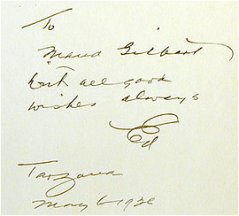 To
Maud Gilbert
with all good
wishes always
Ed
Tarzana
May 6 1936